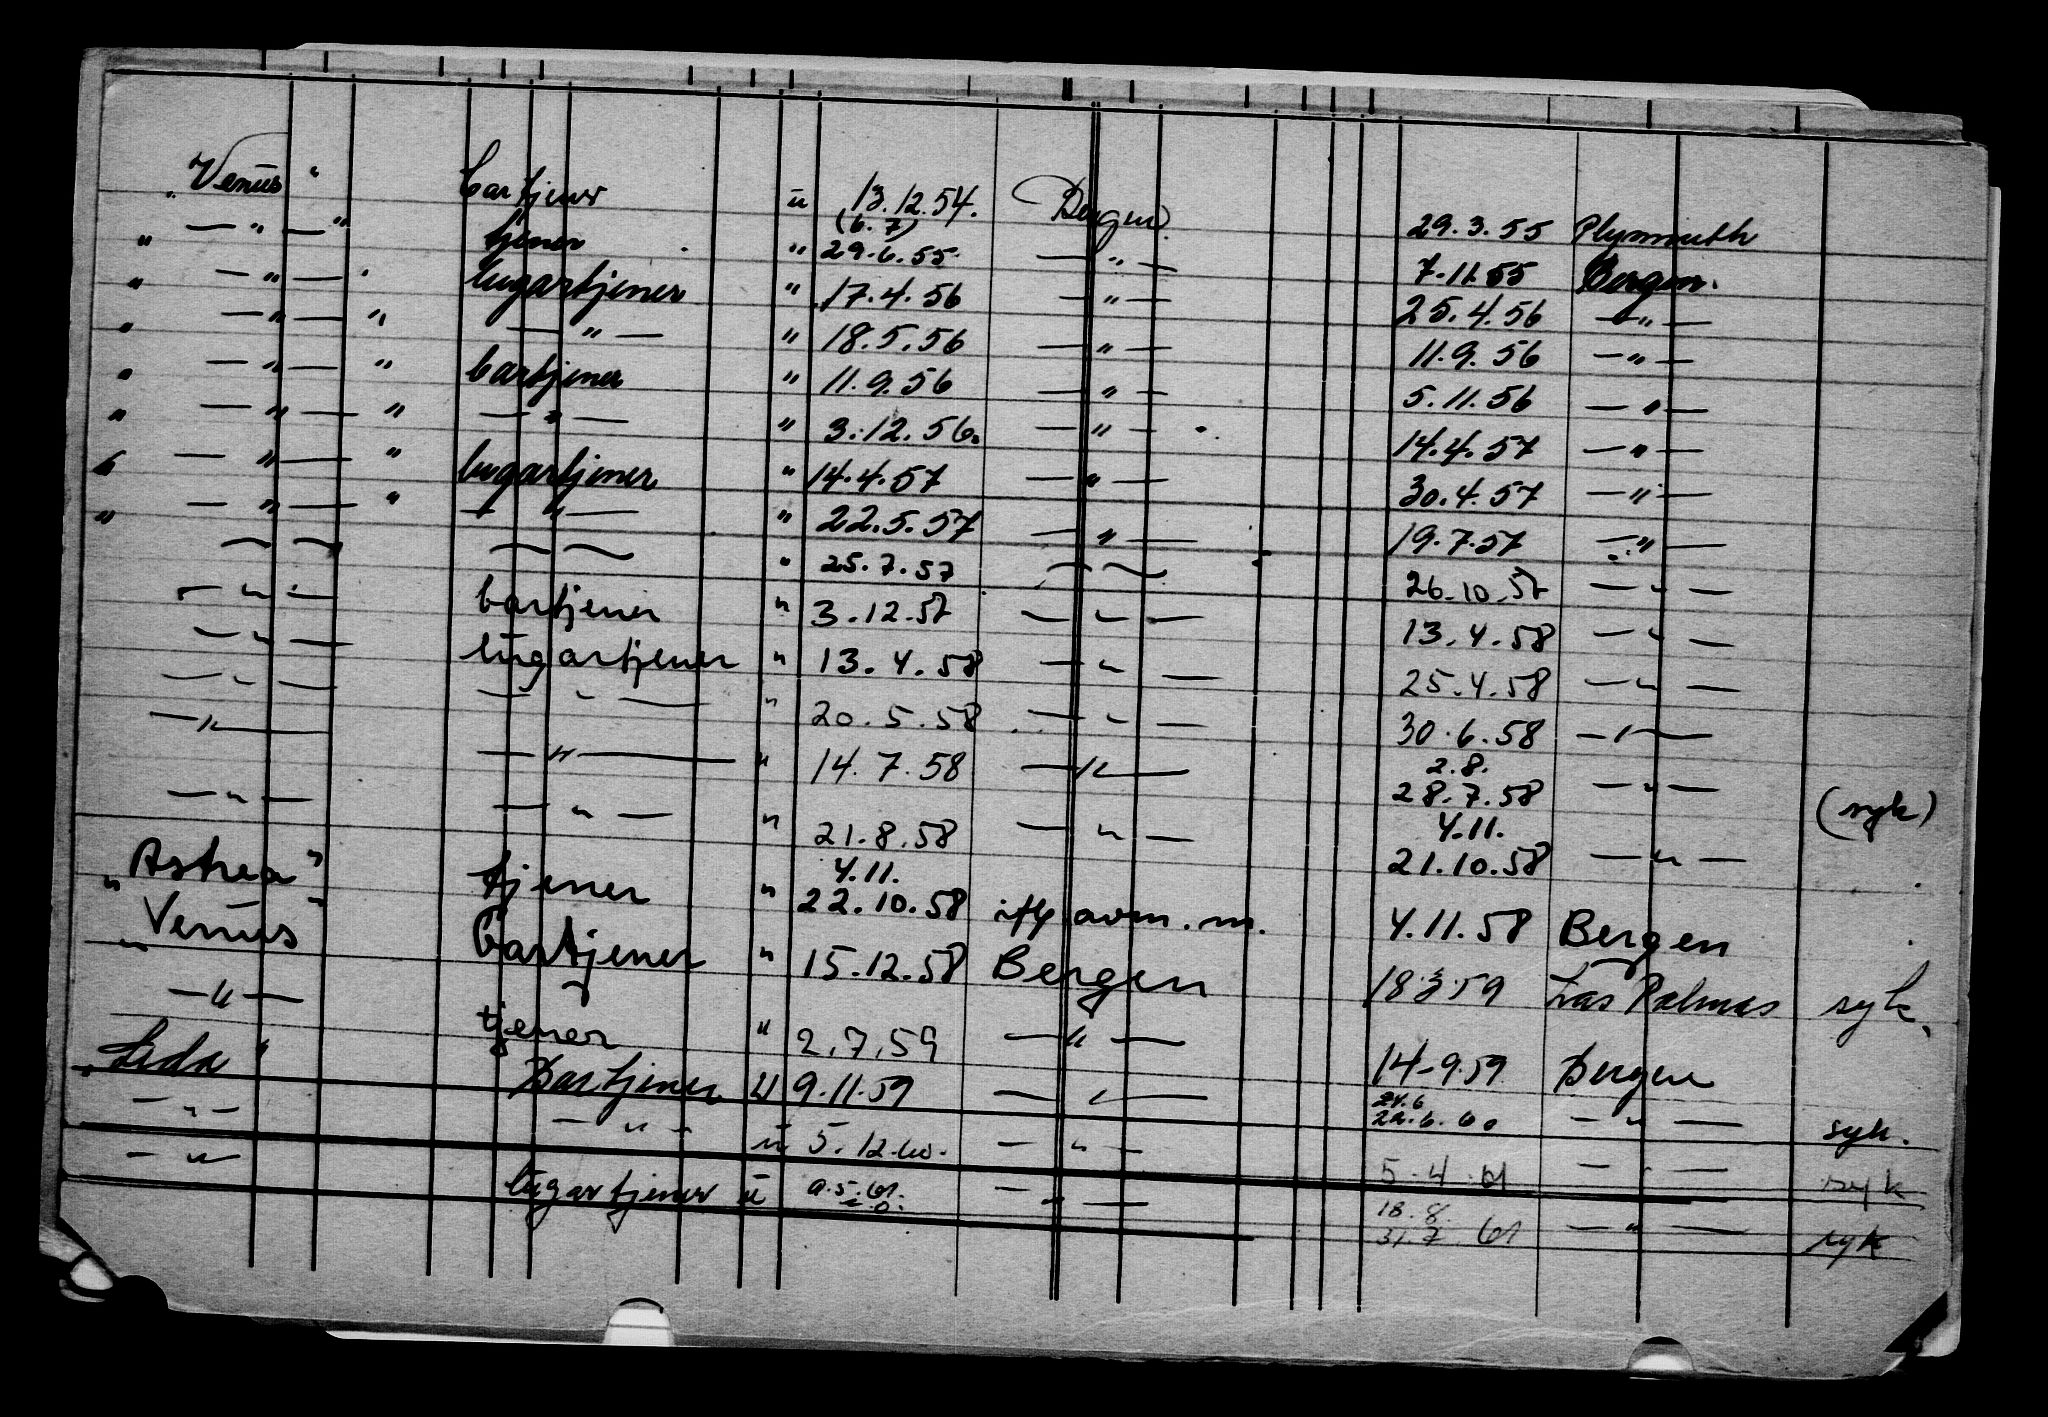 "Venus" bartjener u 13.12.54. Bergen 29.3.55 Plymouth
" — " — " tjener " (6.7) 29.6.55. — " — 7.11.55 Bergen.
" — " — " lugartjener " 17.4.56 — " — 25.4.56 — " —
" — " — " — " — " 18.5.56 — " — 11.9.56 — " —
" — " — " bartjener " 11.9.56 — " — 5.11.56 — " —
" — " — " — " — " 3.12.56. — " — 14.4.57 — " —
" — " — " lugartjener " 14.4.57 — " — 30.4.57 — " —
" — " — " — " — " 22.5.57 — " — 19.7.57 — " —
— — — — " 25.7.57 — — 26.10.57 — " —
— " — bartjener " 3.12.57 — " — 13.4.58 — " —
— " — lugartjener " 13.4.58 — " — 25.4.58 — " —
— " — — " — " 20.5.58 — " — 30.6.58 — " —
— " — — " — " 14.7.58 — " — 2.8. 28.7.58 — " — (syk)
— " — — " — " 21.8.58 — " — 4.11. 21.10.58 — " —
"Astrea" tjener " 4.11. 22.10.58 avm. m. 4.11.58 Bergen
"Venus" bartjener " 15.12.58 Bergen 18.3.59 Las Palmas syk.
— " — tjener " 2.7.59 — " — 14-9.59 Bergen
"Leda" Bartjener u 9.11.59 — " — 24.6 22.6.60 — " — syk.
— " — — " — u 5.12.60. — " — 5.4.61 — " — syk
— " — lugartjener u — " — 18.8. 31.7.61 — " — syk